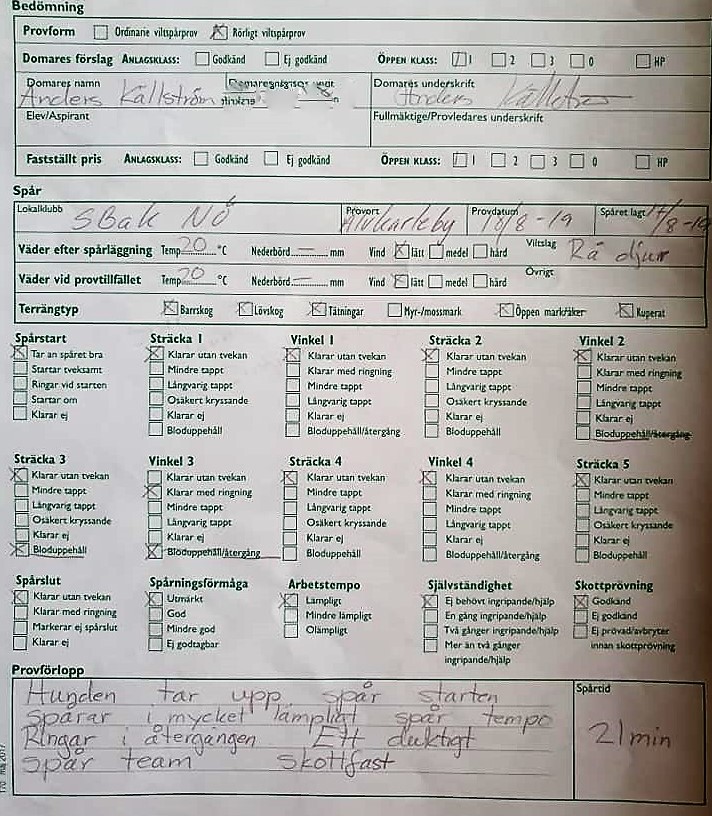 Bedömning
Provform Ordinarie viltspårprov Rörligt viltspårprov
Domares förslag ANLAGSKLASS: Godkänd Ej godkänd ÖPPEN KLASS: 1 2 3 0 HP
Domares namn Domares underskrift
Anders Källström Anders Källström
Elev/Aspirant Fullmäktige/Provledares underskrift
Fastställt pris ANLAGSKLASS: Godkänd Ej godkänd ÖPPEN KLASS: 1 2 3 0 HP
Spår
Lokalklubb Provort Provdatum Spåret lagt
SBak NÖ Älvkarleby 18/8-19 17/8-19
Väder efter spårläggning Temp 20 °C Nederbörd — mm Vind lätt medel hård Viltslag Rå djur
Väder vid provtillfället Temp 20 °C Nederbörd — mm Vind lätt medel hård Övrigt
Terrängtyp Barrskog Lövskog Tätningar Myr-/mossmark Öppen mark/åker Kuperat
Spårstart Sträcka 1 Vinkel 1 Sträcka 2 Vinkel 2
Tar an spåret bra Klarar utan tvekan Klarar utan tvekan Klarar utan tvekan Klarar utan tvekan
Startar tveksamt Mindre tappt Klarar med ringning Mindre tappt Klarar med ringning
Ringar vid starten Långvarig tappt Mindre tappt Långvarig tappt Mindre tappt
Startar om Osäkert kryssande Långvarig tappt Osäkert kryssande Långvarig tappt
Klarar ej Klarar ej Klarar ej Klarar ej Klarar ej
Bloduppehåll Bloduppehåll/återgång Bloduppehåll Bloduppehåll/återgång
Sträcka 3 Vinkel 3 Sträcka 4 Vinkel 4 Sträcka 5
Klarar utan tvekan Klarar utan tvekan Klarar utan tvekan Klarar utan tvekan Klarar utan tvekan
Mindre tappt Klarar med ringning Mindre tappt Klarar med ringning Mindre tappt
Långvarig tappt Mindre tappt Långvarig tappt Mindre tappt Långvarig tappt
Osäkert kryssande Långvarig tappt Osäkert kryssande Långvarig tappt Osäkert kryssande
Klarar ej Klarar ej Klarar ej Klarar ej Klarar ej
Bloduppehåll Bloduppehåll/återgång Bloduppehåll Bloduppehåll/återgång Bloduppehåll
Spårslut Spårningsförmåga Arbetstempo Självständighet Skottprövning
Klarar utan tvekan Utmärkt Lämpligt Ej behövt ingripande/hjälp Godkänd
Klarar med ringning God Mindre lämpligt En gång ingripande/hjälp Ej godkänd
Markerar ej spårslut Mindre god Olämpligt Två gånger ingripande/hjälp Ej prövad/avbryter
Klarar ej Ej godtagbar Mer än två gånger innan skottprövning
ingripande/hjälp
Provförlopp
Hunden tar upp spår starten Spårtid
Spårar i mycket lämpligt spår tempo
Ringar i återgången Ett duktigt 21 min
Spår team skottfast
170 maj 2017